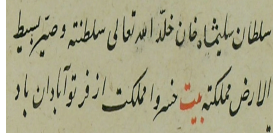 سلطان سلیمشاه خان خلّد الله تعالی سلطنته و صیّر بسیط
الارض مملکته بیت خسروا مملکت از فر تو آبادان باد